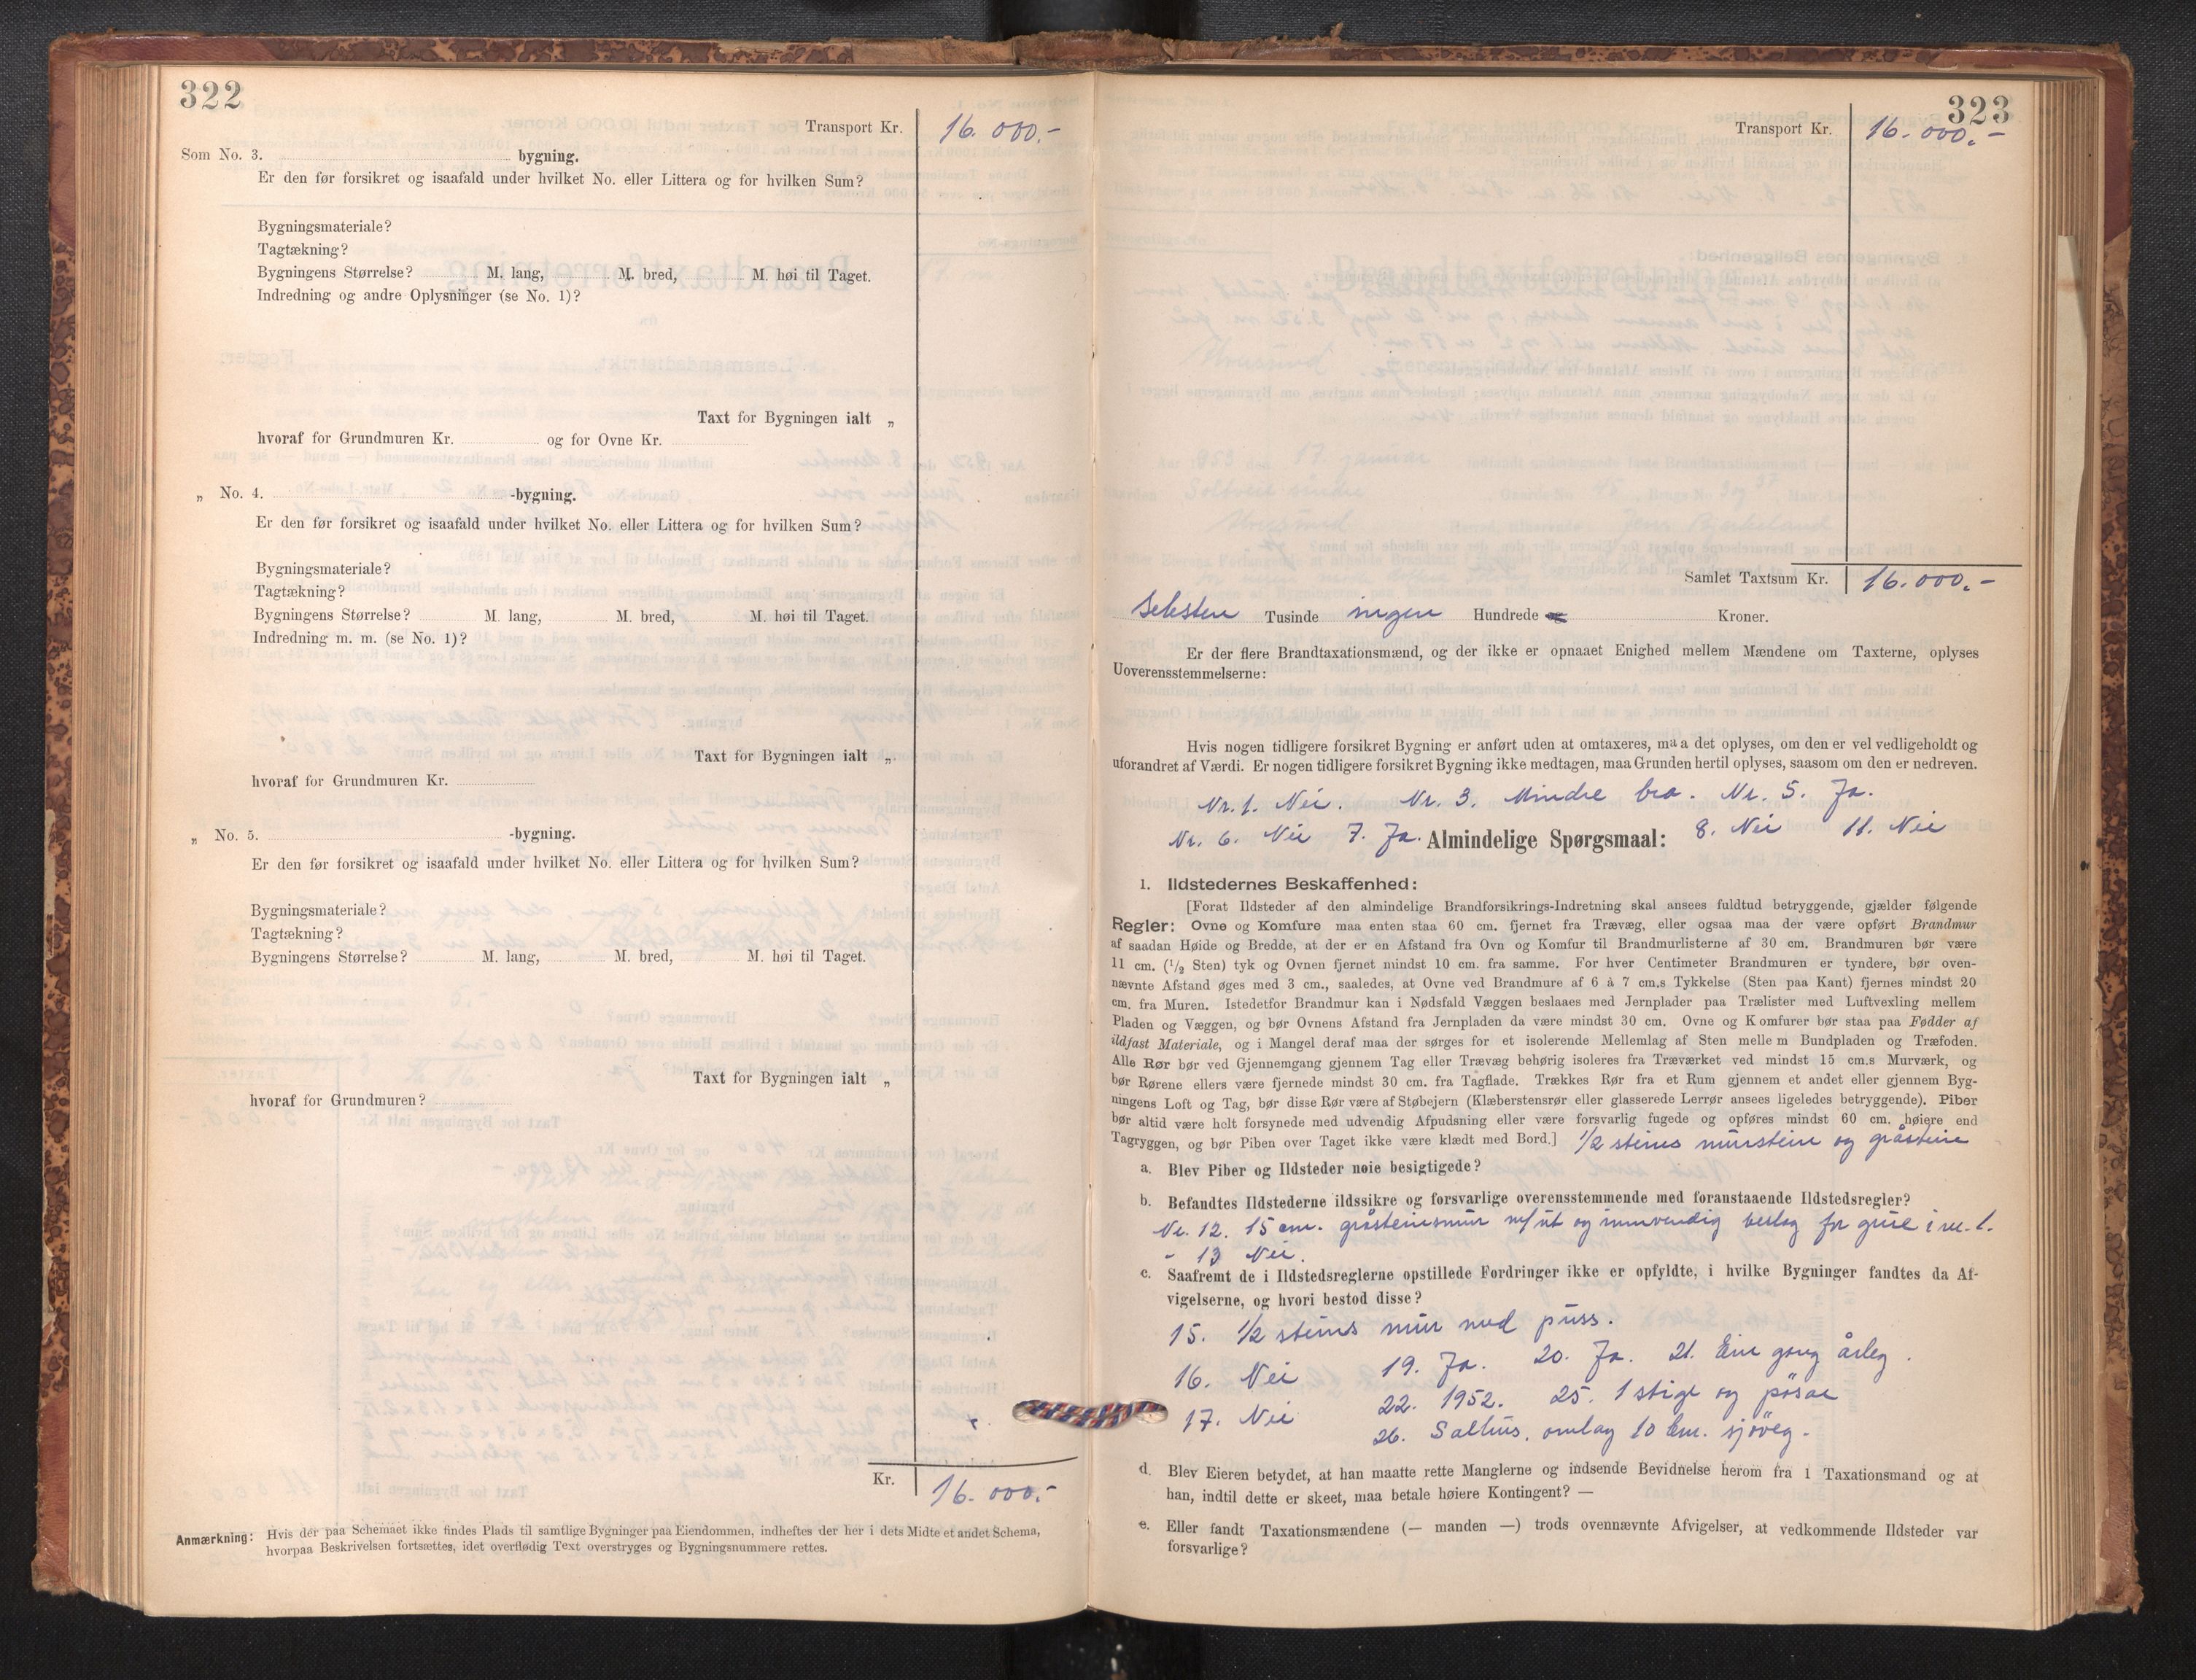 322
Transport Kr. 16.000.-
Som No. 3. bygning.
Er den før forsikret og isaafald under hvilket No. eller Littera og for hvilken Sum?
Bygningsmateriale?
Tagtækning?
Bygningens Størrelse? M. lang, M. bred, M. høi til Taget.
Indredning og andre Oplysninger (se No. 1)?
Taxt for Bygningen ialt „
hvoraf for Grundmuren Kr. og for Ovne Kr.
„ No. 4. -bygning.
Er den før forsikret og isaafald under hvilket No. eller Littera og for hvilken Sum?
Bygningsmateriale?
Tagtækning?
Bygningens Størrelse? M. lang, M. bred, M. høi til Taget.
Indredning m. m. (se No. 1)?
Taxt for Bygningen ialt „
hvoraf for Grundmuren Kr.
„ No. 5. -bygning.
Er den før forsikret og isaafald under hvilket No. eller Littera og for hvilken Sum?
Bygningsmateriale?
Tagtækning?
Bygningens Størrelse? M. lang, M. bred, M. høi til Taget.
Taxt for Bygningen ialt „
hvoraf for Grundmuren?
Kr. 16.000.-
Anmærkning: Hvis der paa Schemaet ikke findes Plads til samtlige Bygninger paa Eiendommen, indheftes der her i dets Midte et andet Schema,
hvorpaa Beskrivelsen fortsættes, idet overflødig Text overstryges og Bygningsnummere rettes.
323
Transport Kr. 16.000.-
Samlet Taxtsum Kr. 16.000.-
Seksten Tusinde ingen Hundrede og Kroner.
Er der flere Brandtaxationsmænd, og der ikke er opnaaet Enighed mellem Mændene om Taxterne, oplyses
Uoverensstemmelserne:
Hvis nogen tidligere forsikret Bygning er anført uden at omtaxeres, maa det oplyses, om den er vel vedligeholdt og
uforandret af Værdi. Er nogen tidligere forsikret Bygning ikke medtagen, maa Grunden hertil oplyses, saasom om den er nedreven.
Nr. 1. Nei. Nr. 3. Mindre bra. Nr. 5. Ja.
Nr. 6. Nei 7. Ja. Almindelige Spørgsmaal: 8. Nei 11. Nei
1. Ildstedernes Beskaffenhed:
[Forat Ildsteder af den almindelige Brandforsikrings-Indretning skal ansees fuldtud betryggende, gjælder følgende
Regler: Ovne og Komfure maa enten staa 60 cm. fjernet fra Trævæg, eller ogsaa maa der være opført Brandmur
af saadan Høide og Bredde, at der er en Afstand fra Ovn og Komfur til Brandmurlisterne af 30 cm. Brandmuren bør være
11 cm. (1/2 Sten) tyk og Ovnen fjernet mindst 10 cm. fra samme. For hver Centimeter Brandmuren er tyndere, bør oven-
nævnte Afstand øges med 3 cm., saaledes, at Ovne ved Brandmure af 6 à 7 cm.s Tykkelse (Sten paa Kant) fjernes mindst 20
cm. fra Muren. Istedetfor Brandmur kan i Nødsfald Væggen beslaaes med Jernplader paa Trælister med Luftvexling mellem
Pladen og Væggen, og bør Ovnens Afstand fra Jernpladen da være mindst 30 cm. Ovne og Komfurer bør staa paa Fødder af
ildfast Materiale, og i Mangel deraf maa der sørges for et isolerende Mellemlag af Sten mellem Bundpladen og Træfoden.
Alle Rør bør ved Gjennemgang gjennem Tag eller Trævæg behørig isoleres fra Træværket ved mindst 15 cm.s Murværk, og
bør Rørene ellers være fjernede mindst 30 cm. fra Tagflade. Trækkes Rør fra et Rum gjennem et andet eller gjennem Byg-
ningens Loft og Tag, bør disse Rør være af Støbejern (Klæberstensrør eller glasserede Lerrør ansees ligeledes betryggende). Piber
bør altid være helt forsynede med udvendig Afpudsning eller være forsvarlig fugede og opføres mindst 60 cm. høiere end
Tagryggen, og bør Piben over Taget ikke være klædt med Bord.] 1/2 steins murstein og gråstein
a. Blev Piber og Ildsteder nøie besigtigede?
b. Befandtes Ildstederne ildssikre og forsvarlige overensstemmende med foranstaaende Ildstedsregler?
Nr. 12. 15 cm. gråsteinsmur m/ut og innvendig beslag for grue i nr. 1.
- 13 Nei.
c. Saafremt de i Ildstedsreglerne opstillede Fordringer ikke er opfyldte, i hvilke Bygninger fandtes da Af-
vigelserne, og hvori bestod disse?
15. 1/2 steins mur med puss.
16. Nei 19. Ja. 20. Ja. 21. Ein gong årleg.
17. Nei 22. 1952. 25. 1 stige og pøsar
26. Salhus, omlag 10 km. sjøveg.
d. Blev Eieren betydet, at han maatte rette Manglerne og indsende Bevidnelse herom fra 1 Taxationsmand og at
han, indtil dette er skeet, maa betale høiere Kontingent? —
e. Eller fandt Taxationsmændene (— manden —) trods ovennævnte Afvigelser, at vedkommende Ildsteder var
forsvarlige?